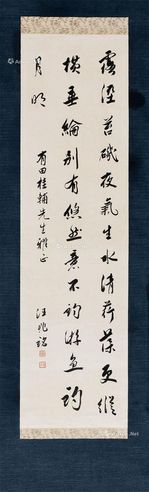 露溼苔磯夜氣生水清荇藻更縱
橫垂綸別有悠然意不釣游魚釣
月明
有田桂輔先生雅正
汪兆銘